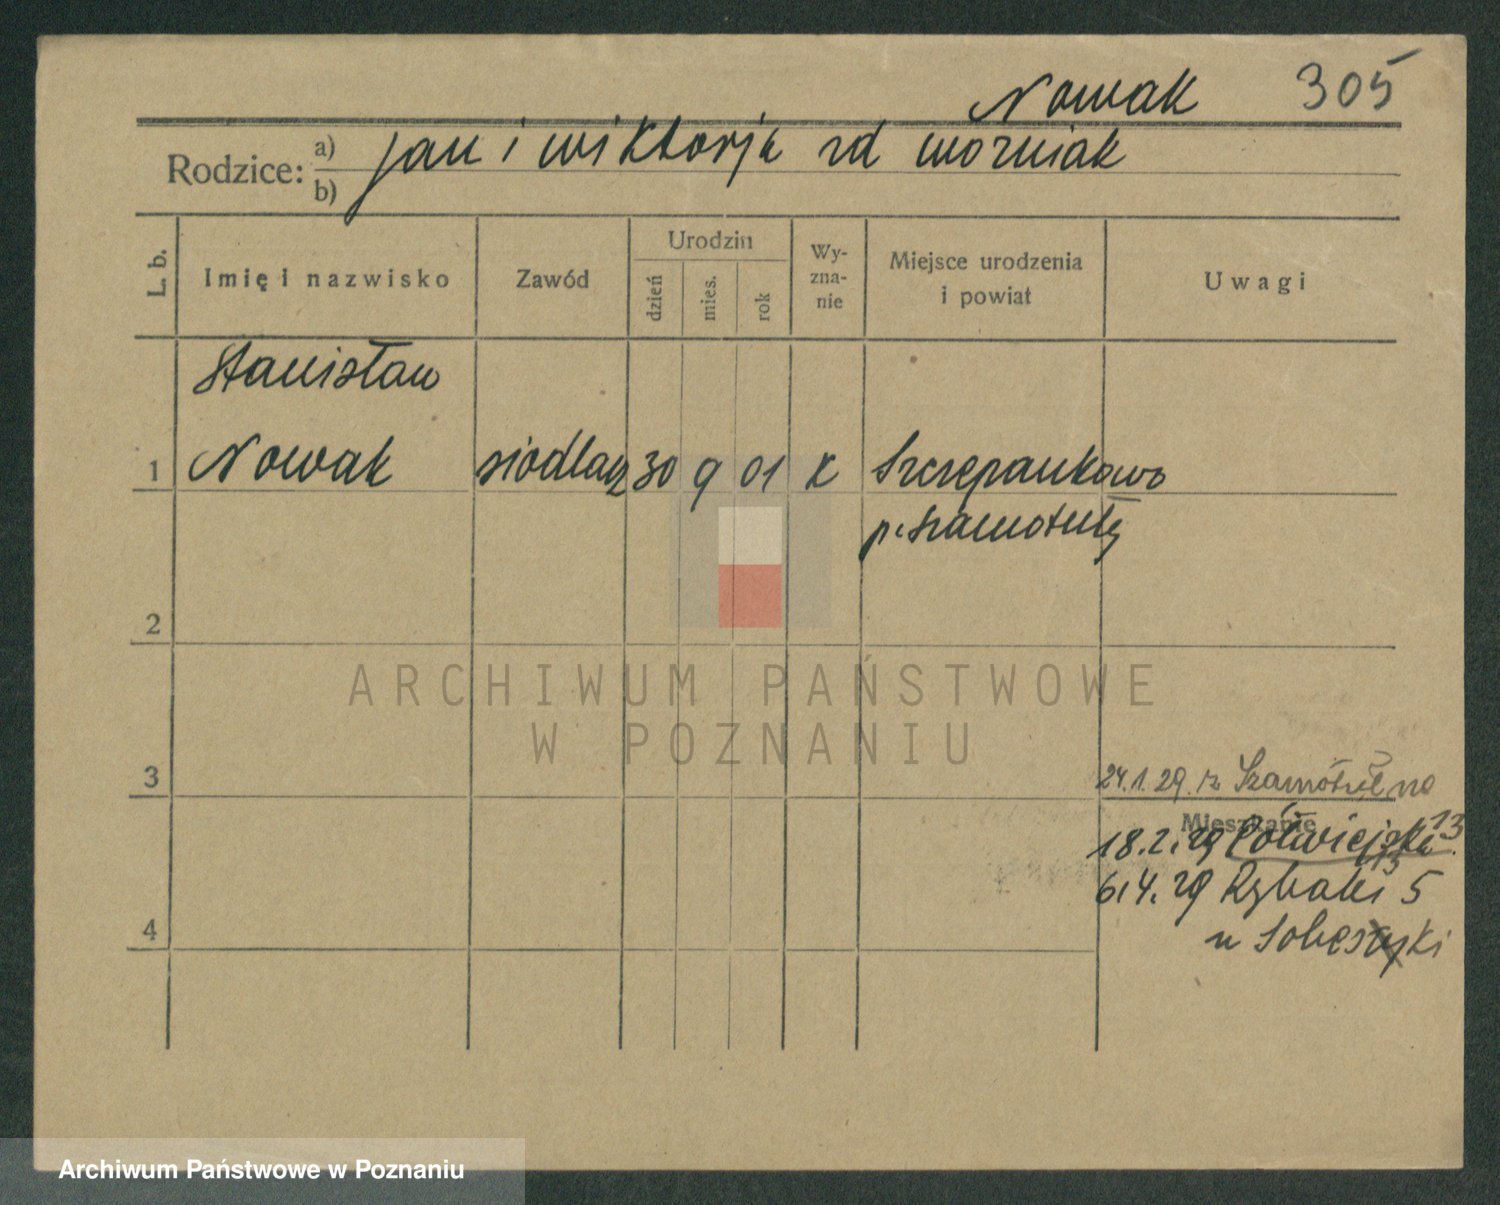 Nowak 305
Rodzice: a) Jan i Wiktorja zd Woźniak
b)
L. b. Imię i nazwisko Zawód Urodzin dzień mies. rok Wyznanie Miejsce urodzenia i powiat Uwagi
Stanisław
1 Nowak siodlarz 30 9 01 K Szczepankowo
p. Szamotuły
2
ARCHIWUM PAŃSTWOWE
W POZNANIU
3 24.1.29. z Szamotuł na
Mieszkanie
18.2.29 Półwiejska 13
6.4.29 Rybaki 5
4 u Sobeski
Archiwum Państwowe w Poznaniu